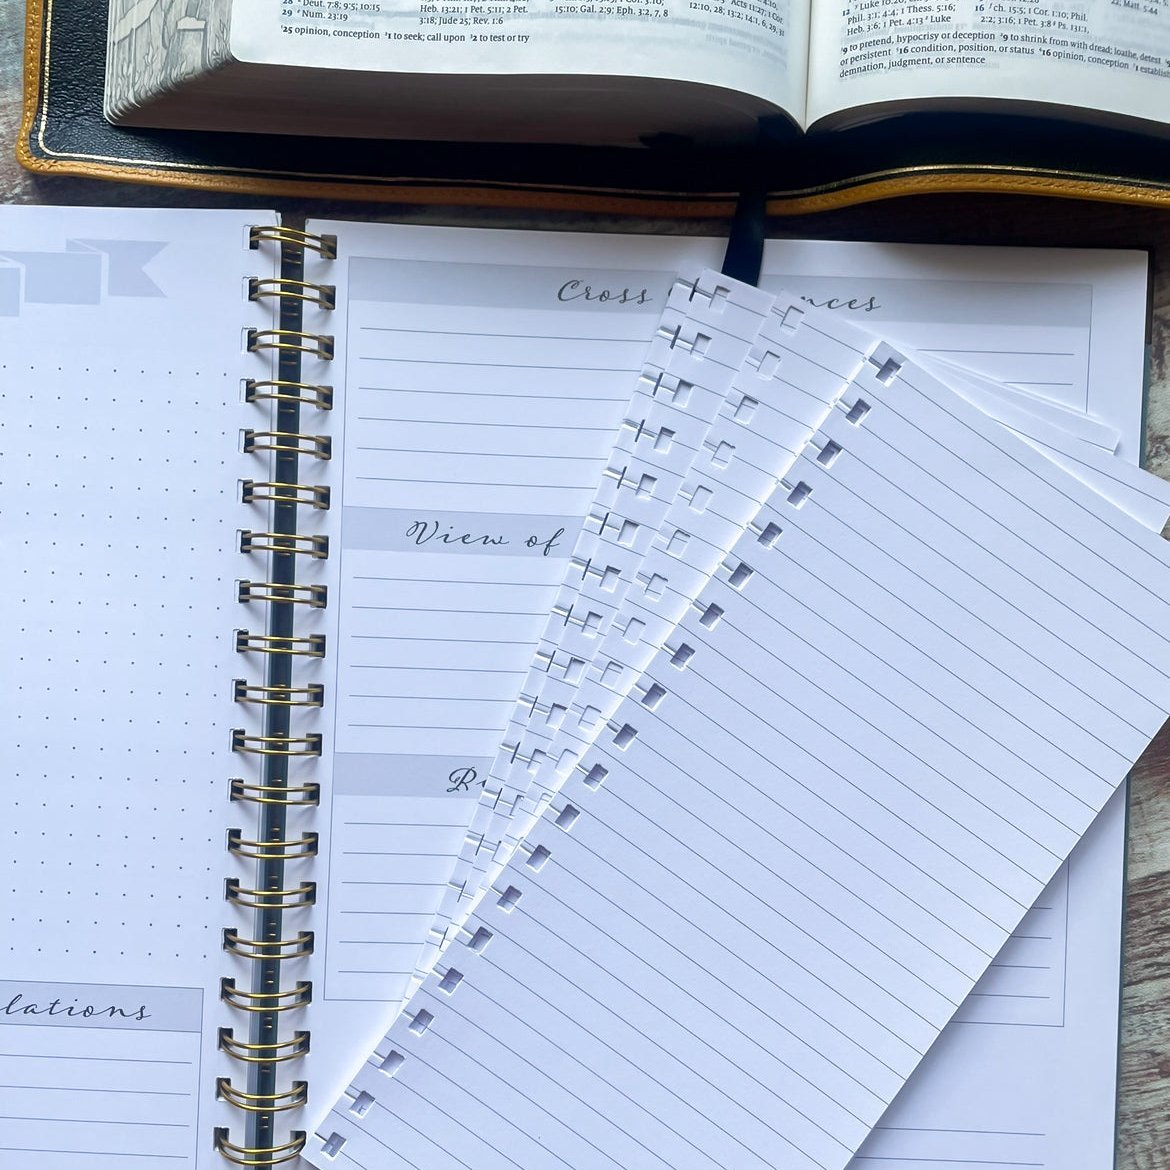 28 ʳ Deut. 7:8; 9:5; 10:15
29 ˢ Num. 23:19
Heb. 13:21; 1 Pet. 5:11; 2 Pet.
3:18; Jude 25; Rev. 1:6
15:10; Gal. 2:9; Eph. 3:2, 7, 8
Acts 11:27; 1 Cor.
12:10, 28; 13:2; 14:1, 6, 29, 31
*25 opinion, conception *1 to seek; call upon *2 to test or try
Luke
Phil. 3:1; 4:4; 1 Thess. 5:16;
Heb. 3:6; 1 Pet. 4:13 ᵈ Luke
16 ᶠ ch. 15:5; 1 Cor. 1:10; Phil.
2:2; 3:16; 1 Pet. 3:8 ᵍ Ps. 131:1,
22; Matt. 5:44
*9 to pretend, hypocrisy or deception *9 to shrink from with dread; loathe, detest
or persistent *16 condition, position, or status *16 opinion, conception *1
demnation, judgment, or sentence
Cross nces
View of
lations